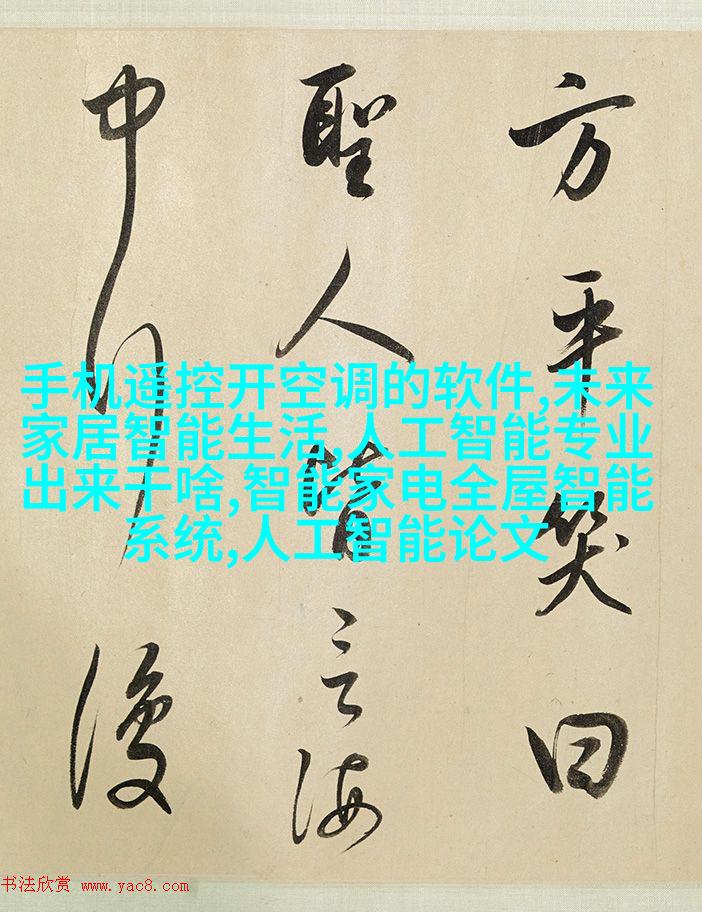 方平笑曰
聖人皆言海
中行復
手机遥控开空调的软件,未来
家居智能生活,人工智能专业
出来干啥,智能家电全屋智能
系统,人工智能论文
书法欣赏 www.yac8.com